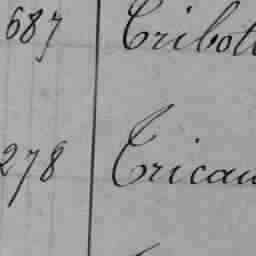 687 Tribou
278 Tricau